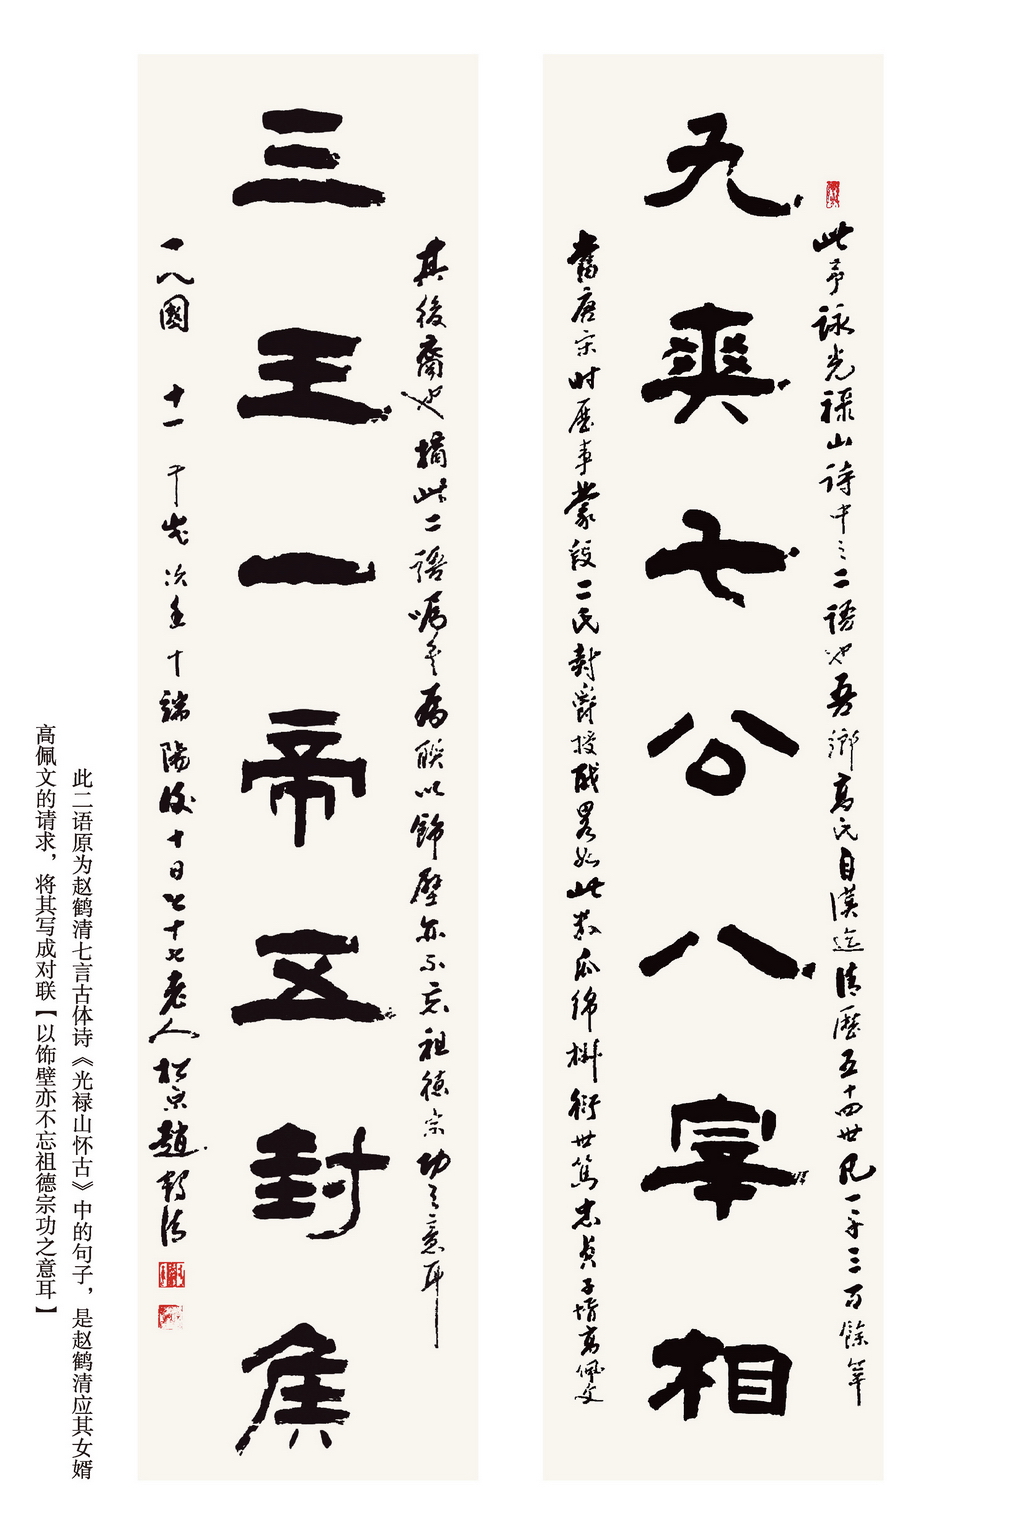 九爽七公八宰相
此予咏光禄山诗中之二語也吾鄉高氏自漢迄清歷五十四世凡一千三百餘年
當唐宋时歷事蒙段二氏封爵授职畧如此衣瓜綿衍世篤忠貞子壻高佩文
三王一帝五封侯
其後裔也摘此二語嘱予為聯以飾壁亦不忘祖德宗功之意耳
國 十一 年歲次 端陽後十日七十七老人松泉趙鶴清
此二语原为赵鹤清七言古体诗《光禄山怀古》中的句子，是赵鹤清应其女婿
高佩文的请求，将其写成对联【以饰壁亦不忘祖德宗功之意耳】